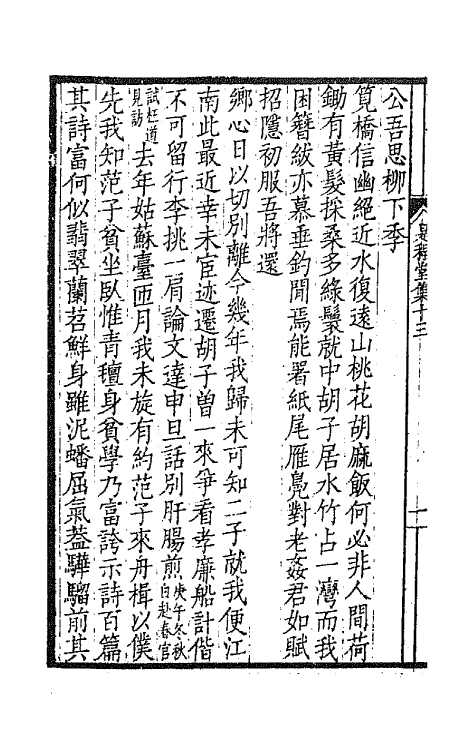 公吾思柳下季
筧橋信幽絕近水復遠山桃花胡麻飯何必非人間荷
鋤有黃髮採桑多綠鬟就中胡子居水竹占一灣而我
困簪紱亦慕垂釣閒焉能署紙尾雁鳧對老姦君如賦
招隱初服吾將還
鄉心日以切別離今幾年我歸未可知二子就我便江
南此最近幸未宦迹遷胡子曾一來爭看孝廉船計偕
不可留行李挑一肩論文達申旦話別肝腸煎庚午冬秋白赴春官
試枉道見訪去年姑蘇臺匝月我未旋有約范子來舟楫以僕
先我知范子貧坐臥惟青氊身貧學乃富誇示詩百篇
其詩富何似翡翠蘭苕鮮身雖泥蟠屈氣蓋驊騮前其